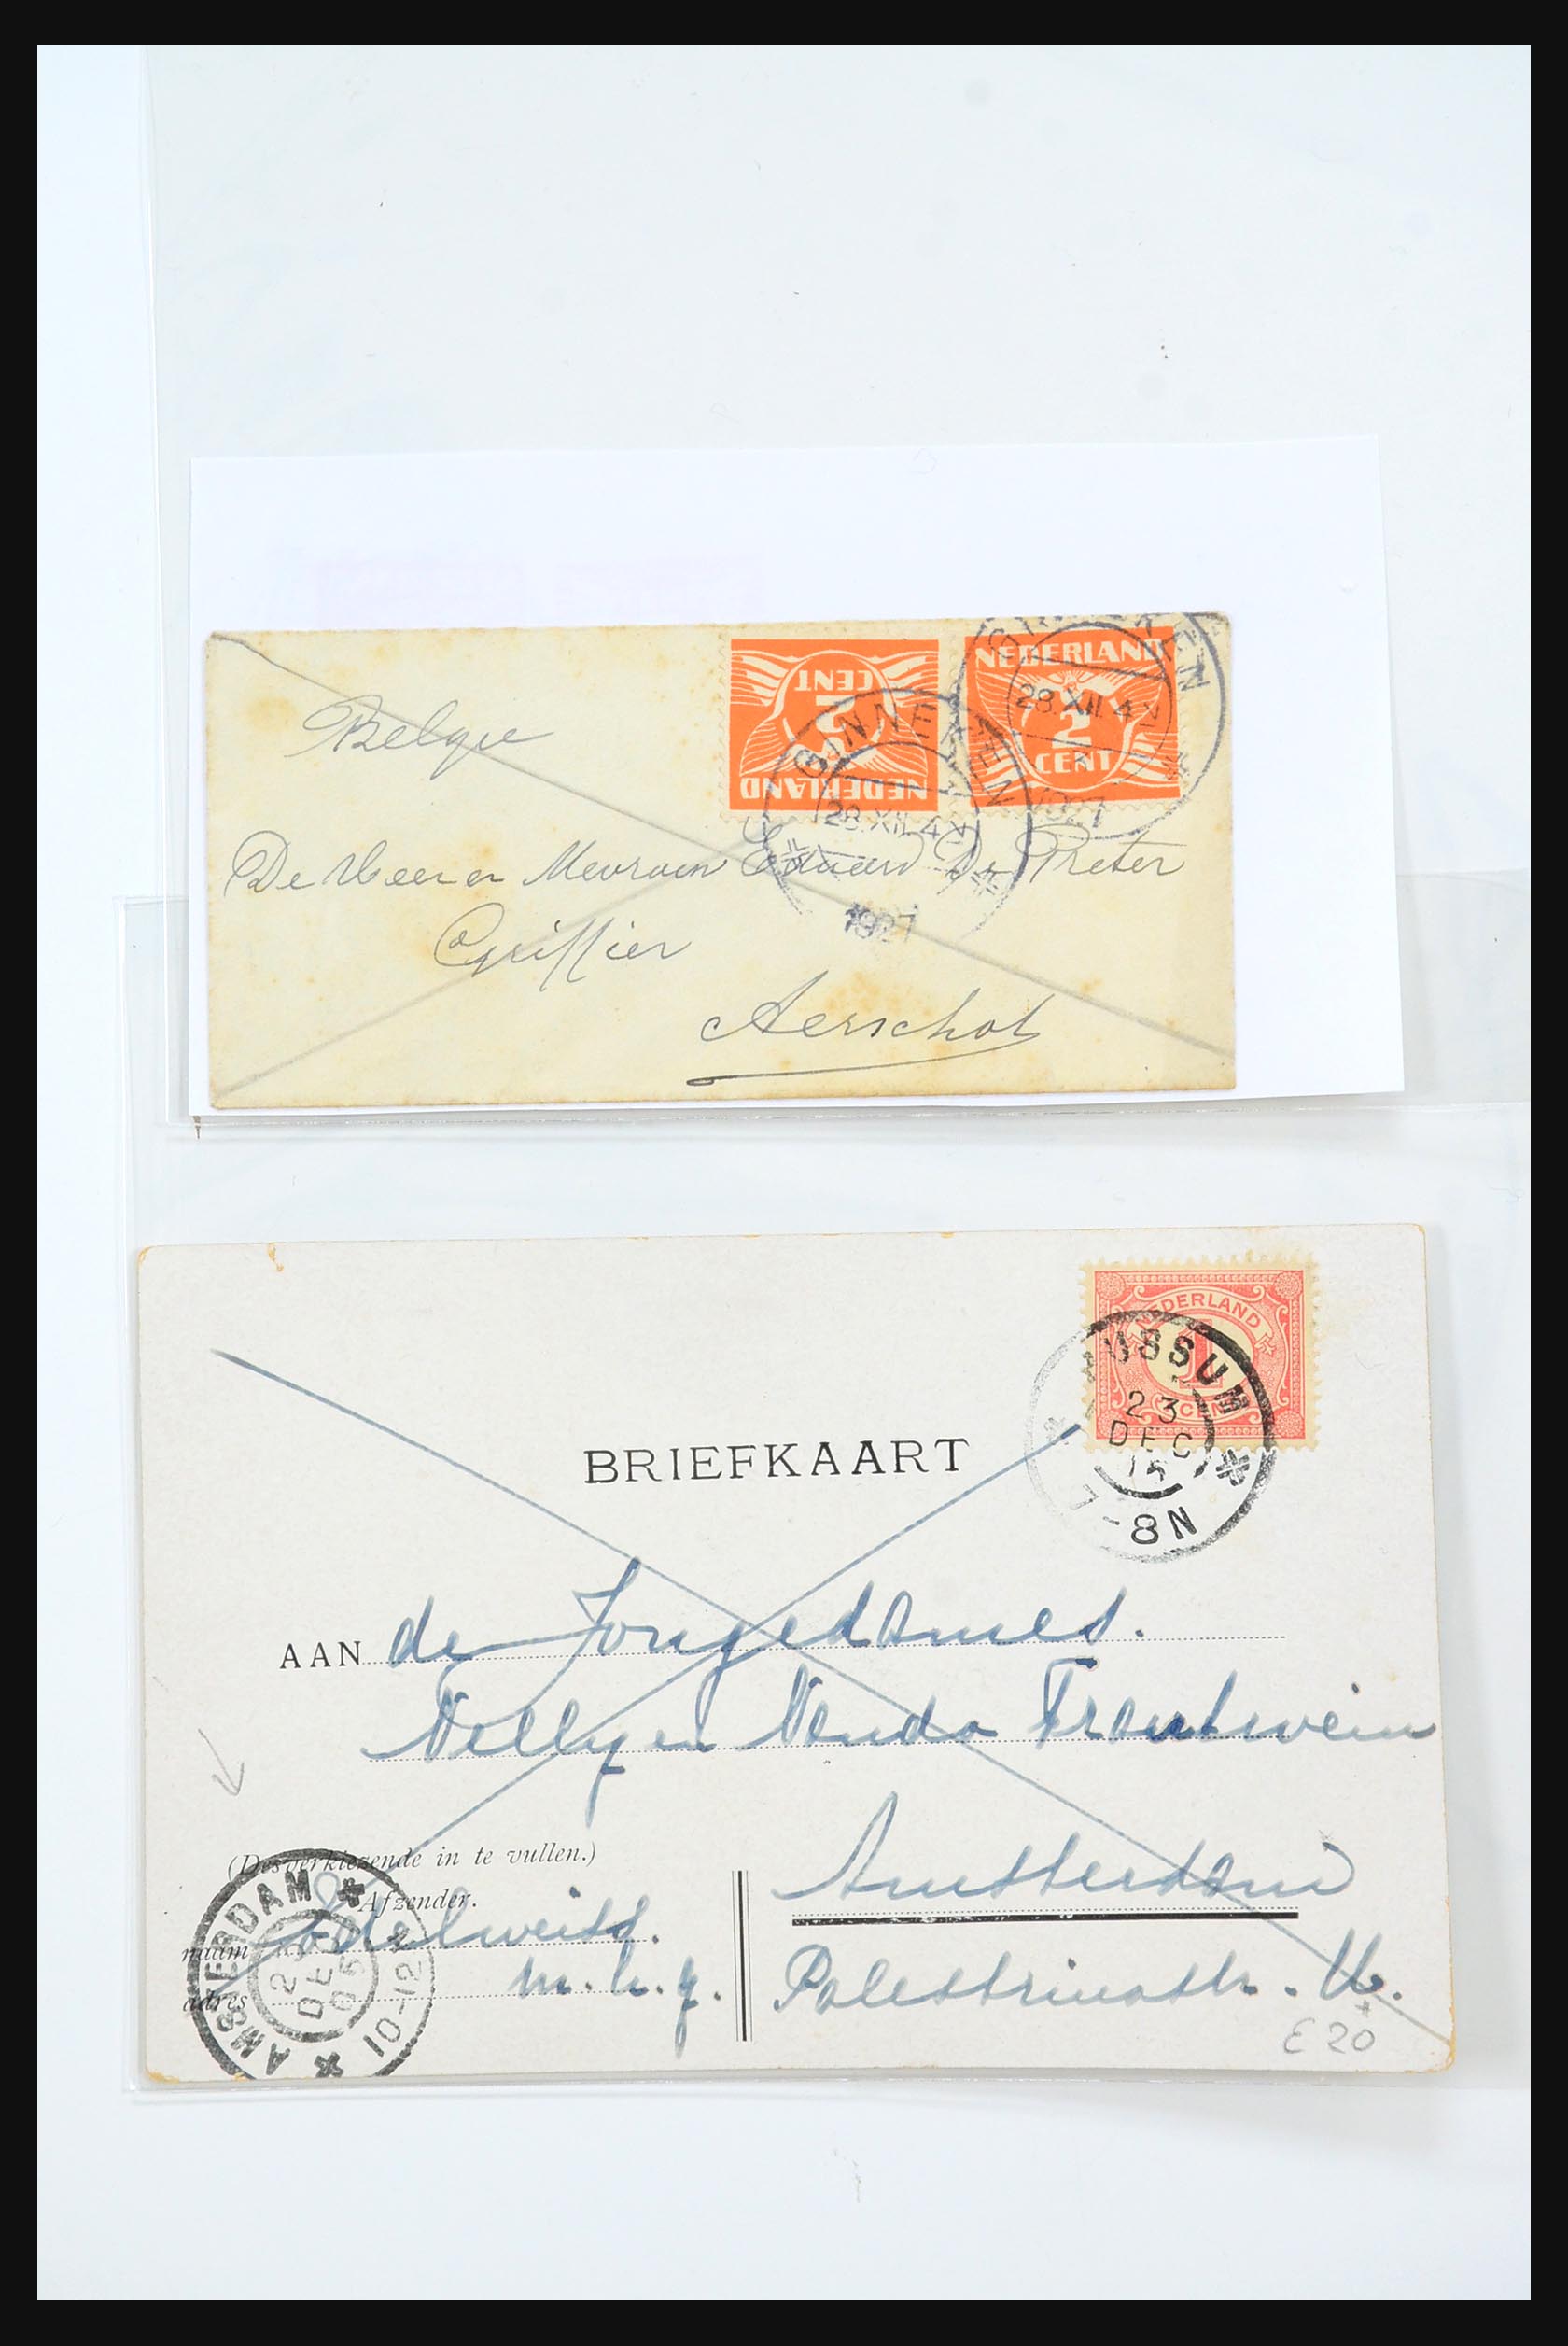 NEDERLAND
2
CENT
NEDERLAND
2
CENT
GINNEKEN
28.XII.4V
1927
28.XII.4V
1927
Belgie
De Heer en Mevrouw Eduard De Preter
Griffier
Aerschot
NEDERLAND
1
CENT
USSUM
23
DEC
7-8N
BRIEFKAART
AAN de Jongedames.
Nelly en Nanda Trautwein
Amsterdam
Palestrinastr.
(Desverkiezende in te vullen.)
Afzender.
naam Edelweiss.
adres m.h.g.
AMSTERDAM
DEC
05
10-12
E 20